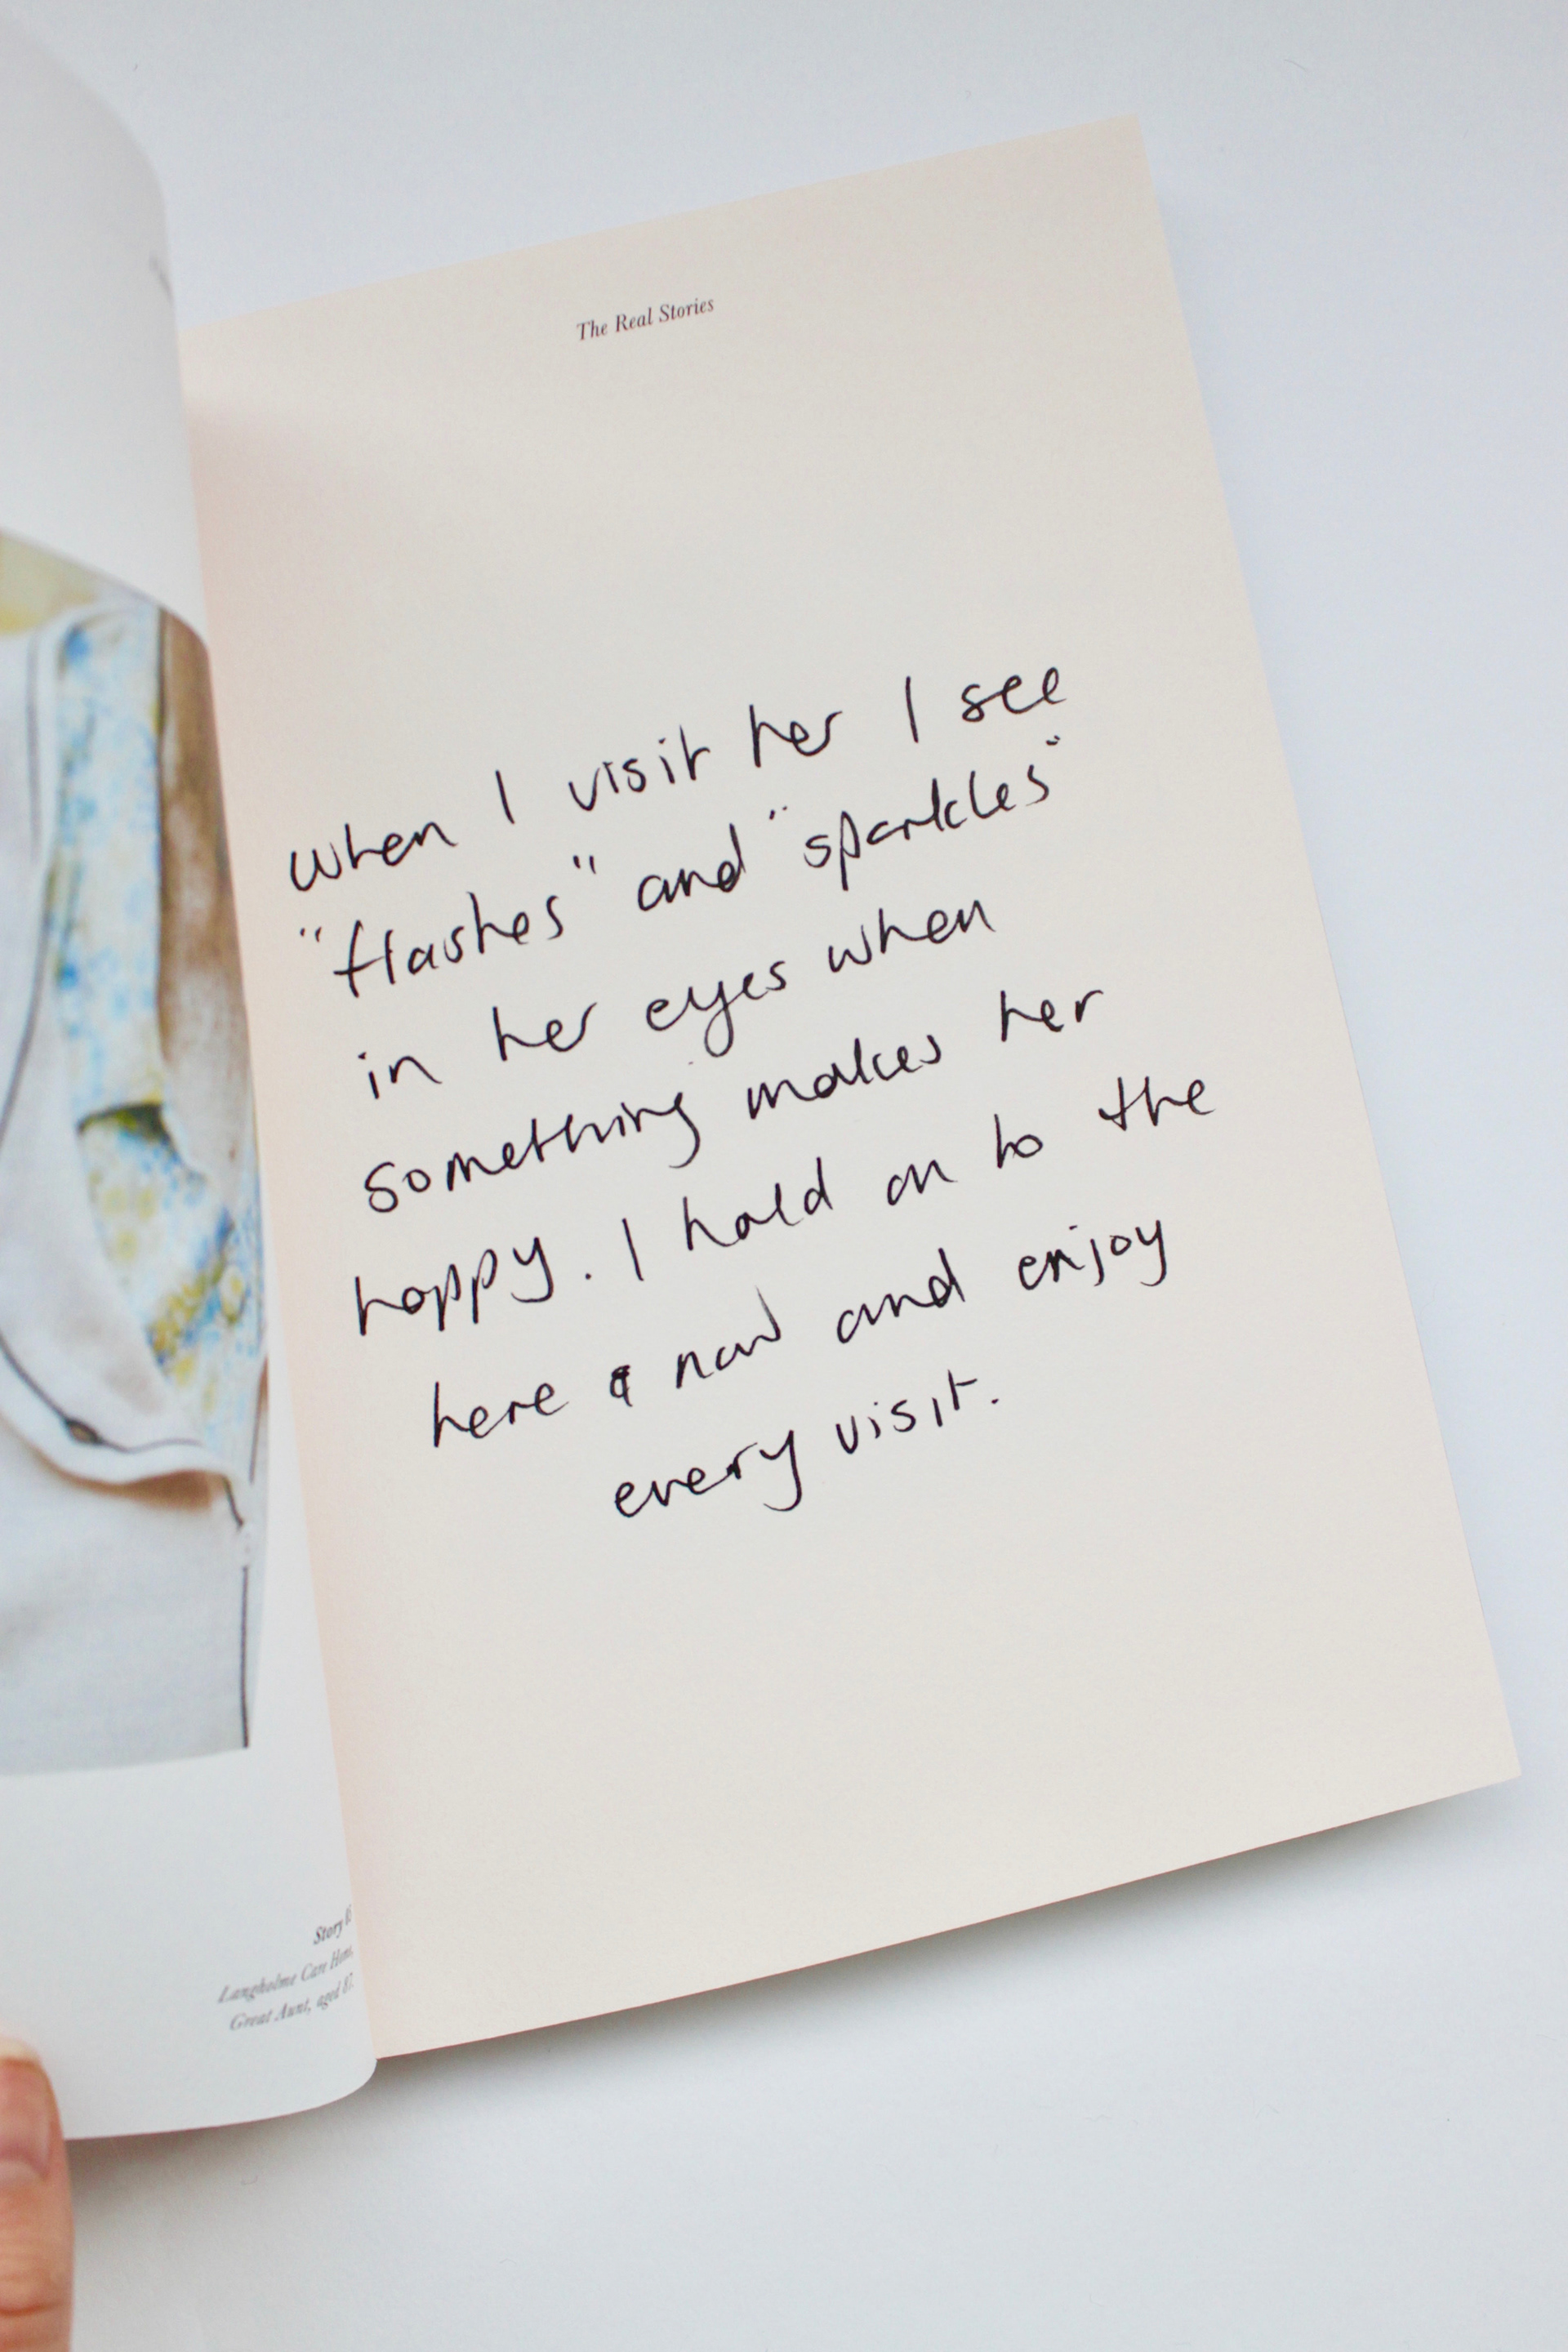 The Real Stories
when I visit her I see
"flashes" and "sparkles"
in her eyes when
something makes her
happy. I hold on to the
here & now and enjoy
every visit.
Story
Langholme Care Home,
Great Aunt, aged 87.